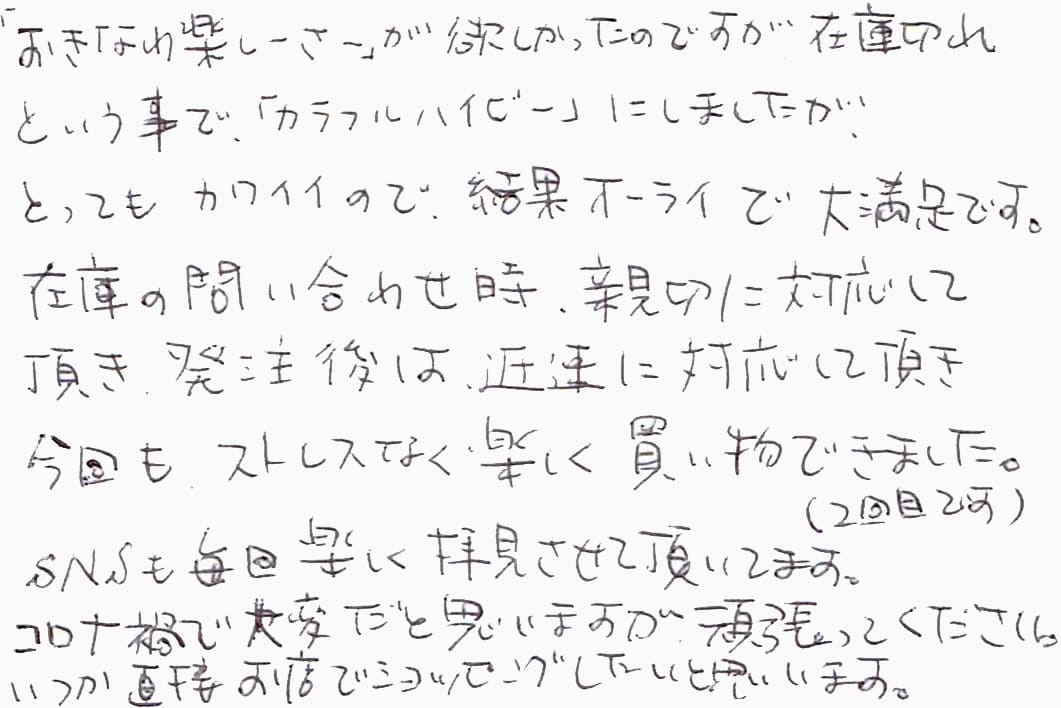 「おきなわ楽しーさー」が欲しかったのですが在庫切れ
という事で、「カラフルハイビー」にしましたが、
とってもカワイイので、結果オーライで大満足です。
在庫の問い合わせ時、親切に対応して
頂き、発注後は、迅速に対応して頂き
今回も、ストレスなく楽しく買い物できました。
(2回目です)
SNSも毎回楽しく拝見させて頂いてます。
コロナ禍で大変だと思いますが、頑張ってください。
いつか直接お店でショッピングしたいと思います。